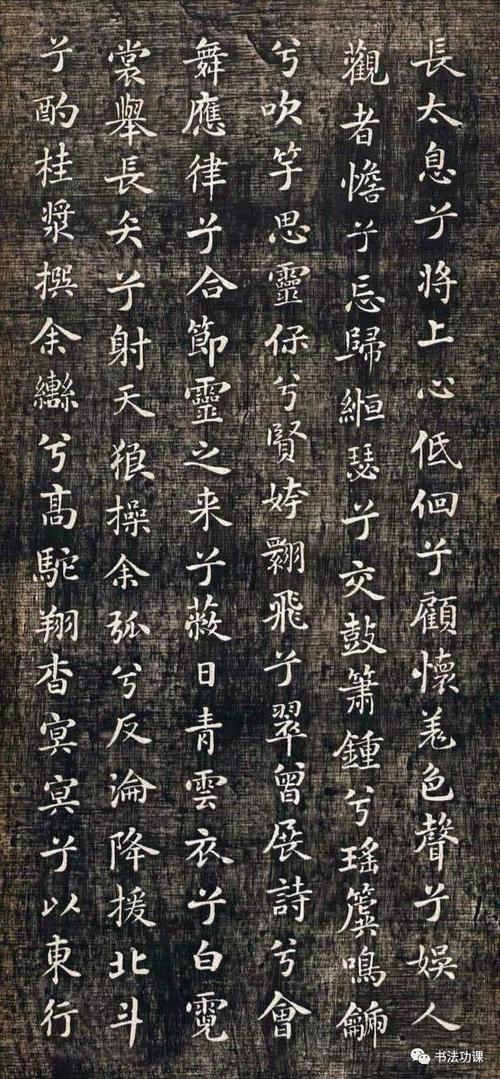 長太息兮將上心低佪兮顧懷羌色聲兮娛人
觀者憺兮忘歸緪瑟兮交鼓簫鍾兮瑤簴鳴䶵
兮吹竽思靈保兮賢姱翾飛兮翠曾展詩兮會
舞應律兮合節靈之来兮蔽日青雲衣兮白霓
裳舉長矢兮射天狼操余弧兮反淪降援北斗
兮酌桂漿撰余轡兮高駝翔杳冥冥兮以東行
书法功课